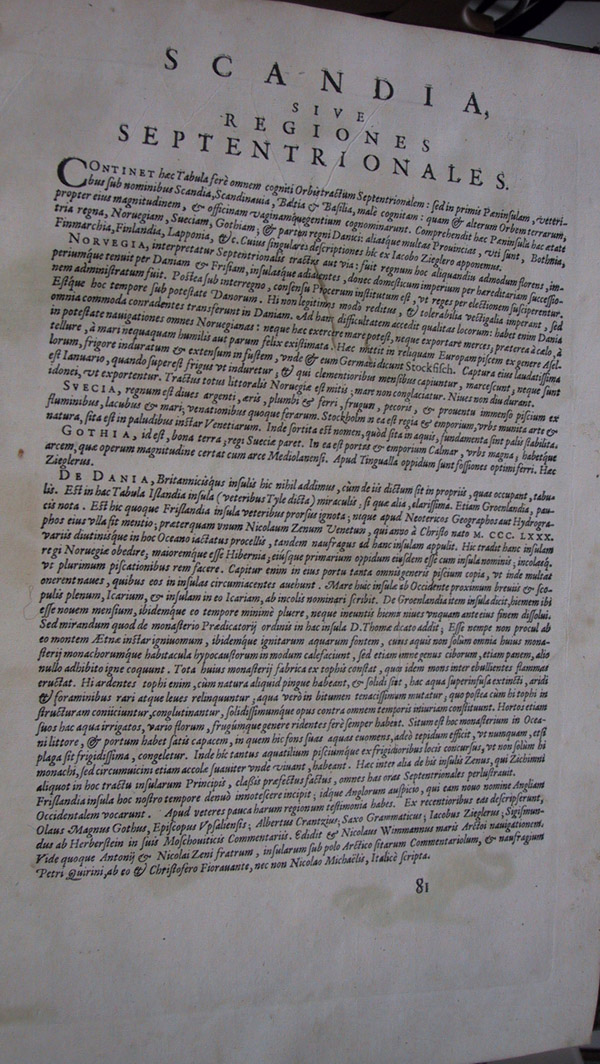 SCANDIA,
SIVE
REGIONES
SEPTENTRIONALES.
CONTINET hæc Tabula ferè omnem cogniti Orbis tractum Septentrionalem : sed in primis Peninsulam, veteri-
bus sub nominibus Scandia, Scandinauia, Baltia & Basilia, malè cognitam : quam & alterum Orbem terrarum,
propter eius magnitudinem, & officinam vaginamque gentium cognominarunt. Comprehendit hæc Peninsula hac ætate
tria regna, Noruegiam, Sueciam, Gothiam ; & partem regni Danici: aliasque multas Prouincias, vti sunt, Bothnia,
Finmarchia, Finlandia, Lapponia, &c. Cuius singulares descriptiones hîc ex Iacobo Zieglero apponemus.
NORVEGIA, interpretatur Septentrionalis tractus aut via : fuit regnum hoc aliquandiu admodum florens, im-
periumque tenuit per Daniam & Frisiam, insulasque adiacentes, donec domesticum imperium per hæreditariam successio-
nem administratum fuit. Postea sub interregno, consensu Procerum institutum est, vt reges per electionem susciperentur.
Estque hoc tempore sub potestate Danorum. Hi non legitimos modò reditus, & tolerabilia vectigalia imperant, sed
omnia commoda conradentes transferunt in Daniam. Ad hanc difficultatem accedit qualitas locorum: habet enim Dania
in potestate nauigationes omnes Noruegianas : neque hæc exercere mare potest, neque exportare merces, præterea à cælo, à
tellure, à mari nequaquam humilis aut parum felix existimata. Hæc mittit in reliquam Europam piscem ex genere Asel-
lorum, frigore induratum & extensum in fustem, vnde & eum Germani dicunt Stockfisch. Captura eius laudatissima
est Ianuario, quando superest frigus vt induretur ; & qui clementioribus mensibus capiuntur, marcescunt; neque sunt
idonei, vt exportentur. Tractus totus littoralis Noruegiæ est mitis : mare non conglaciatur. Niues non diu durant.
SVECIA, regnum est diues argenti, æris, plumbi & ferri, frugum, pecoris, & prouentu immenso piscium ex
fluminibus, lacubus & mari; venationibus quoque ferarum. Stockholm in ea est regia & emporium, vrbs munita arte &
natura, sita est in paludibus instar Venetiarum. Inde sortita est nomen, quòd sita in aquis, fundamenta sint palis stabilita.
GOTHIA, id est, bona terra ; regi Sueciæ paret. In ea est portus & emporium Calmar, vrbs magna ; habetque
arcem, quæ operum magnitudine certat cum arce Mediolanensi. Apud Tingualla oppidum sunt fossiones optimi ferri. Hæc
Zieglerus.
DE DANIA, Britannicisque insulis hîc nihil addimus, cùm de iis dictum sit in propriis, quas occupant, tabu-
lis. Est in hac Tabula Islandia insula (veteribus Tyle dicta) miraculis, si quæ alia, clarissima. Etiam Groenlandia, pau-
cis nota. Est hîc quoque Frislandia insula veteribus prorsus ignota ; neque apud Neotericos Geographos aut Hydrogra-
phos eius vlla sit mentio ; præterquam vnum Nicolaum Zenum Venetum, qui anno à Christo nato M. CCC. LXXX.
variis diutinisque in hoc Oceano iactatus procellis, tandem naufragus ad hanc insulam appulit. Hic tradit hanc insulam
regi Noruegiæ obedire, maioremque esse Hibernia ; eiusque primarium oppidum eiusdem esse cum insula nominis ; incolasque
vt plurimum piscationibus rem facere. Capitur enim in eius portu tanta omnigeneris piscium copia, vt inde multas
onerent naues, quibus eos in insulas circumiacentes auehunt. Mare huic insulæ ab Occidente proximum breuiis & sco-
pulis plenum, Icarium, & insulam in eo Icariam, ab incolis nominari scribit. De Groenlandia item insula dicit, hiemem ibi
esse nouem mensium, ibidemque eo tempore minimè pluere, neque ineuntis hiemis niues vnquam ante eius finem dissolui.
Sed mirandum quod de monasterio Prædicatorij ordinis in hac insula D. Thomæ dicato addit ; Esse nempe non procul ab
eo montem Ætnæ instar igniuomum, ibidemque ignitarum aquarum fontem, cuius aquis non solùm omnia huius mona-
sterij monachorumque habitacula hypocaustorum in modum calefaciunt, sed etiam omne genus ciborum, etiam panem, alio
nullo adhibito igne coquunt. Tota huius monasterij fabrica ex tophis constat, quos idem mons inter ebullientes flammas
eructat. Hi ardentes tophi enim, cùm natura aliquid pingue habeant, & solidi sint, hac aqua superinfusa extincti, aridi
& foraminibus rari atque leues relinquuntur ; aqua verò in bitumen tenacissimum mutatur ; quo postea cùm hi tophi in
structuram coniiciuntur, conglutinantur, solidissimumque opus contra omnem temporis iniuriam constituunt. Hortos etiam
suos hac aqua irrigatos, vario florum, frugumque genere ridentes ferè semper habent. Situm est hoc monasterium in Ocea-
ni littore, & portum habet satis capacem, in quem hic fons suas aquas euomens, adeò tepidum efficit, vt nunquam, etsi
plaga sit frigidissima, congeletur. Inde hîc tantus aquatilium pisciumque ex frigidioribus locis concursus, vt non solùm hi
monachi, sed circumuicini etiam accolæ suauiter vnde viuant, habeant. Hæc inter alia de his insulis Zenus, qui Zichimni
aliquot in hoc tractu insularum Principis, classis præfectus factus, omnes has oras Septentrionales perlustrauit.
Frislandia insula hoc nostro tempore denuò innotescere incipit ; idque Anglorum auspicio, qui eam nouo nomine Angliam
Occidentalem vocarunt. Apud veteres pauca harum regionum testimonia habes. Ex recentioribus eas descripserunt,
Olaus Magnus Gothus, Episcopus Vpsaliensis ; Albertus Crantzius; Saxo Grammaticus ; Iacobus Zieglerus ; Sigismun-
dus ab Herberstein in suis Moschouiticis Commentariis. Edidit & Nicolaus Wimmannus maris Arctoi nauigationem.
Vide quoque Antonij & Nicolai Zeni fratrum, insularum sub polo Arctico sitarum Commentariolum, & naufragium
Petri Quirini, ab eo & Christofero Fiorauante, nec non Nicolao Michaëlis, Italicè scripta.
81